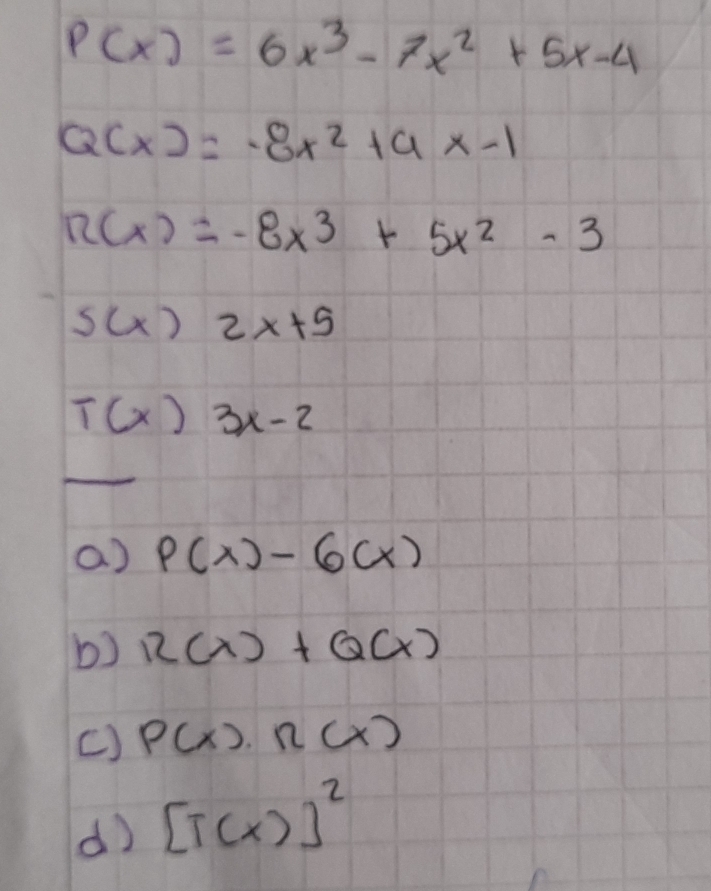 P(x) = 6x³ - 7x² + 5x-4
Q(x) = -8x² + 4x-1
R(x) = -8x³ + 5x² - 3
S(x) 2x+5
T(x) 3x-2
a) P(x) - 6(x)
b) R(x) + Q(x)
c) P(x). R(x)
d) [T(x)]²